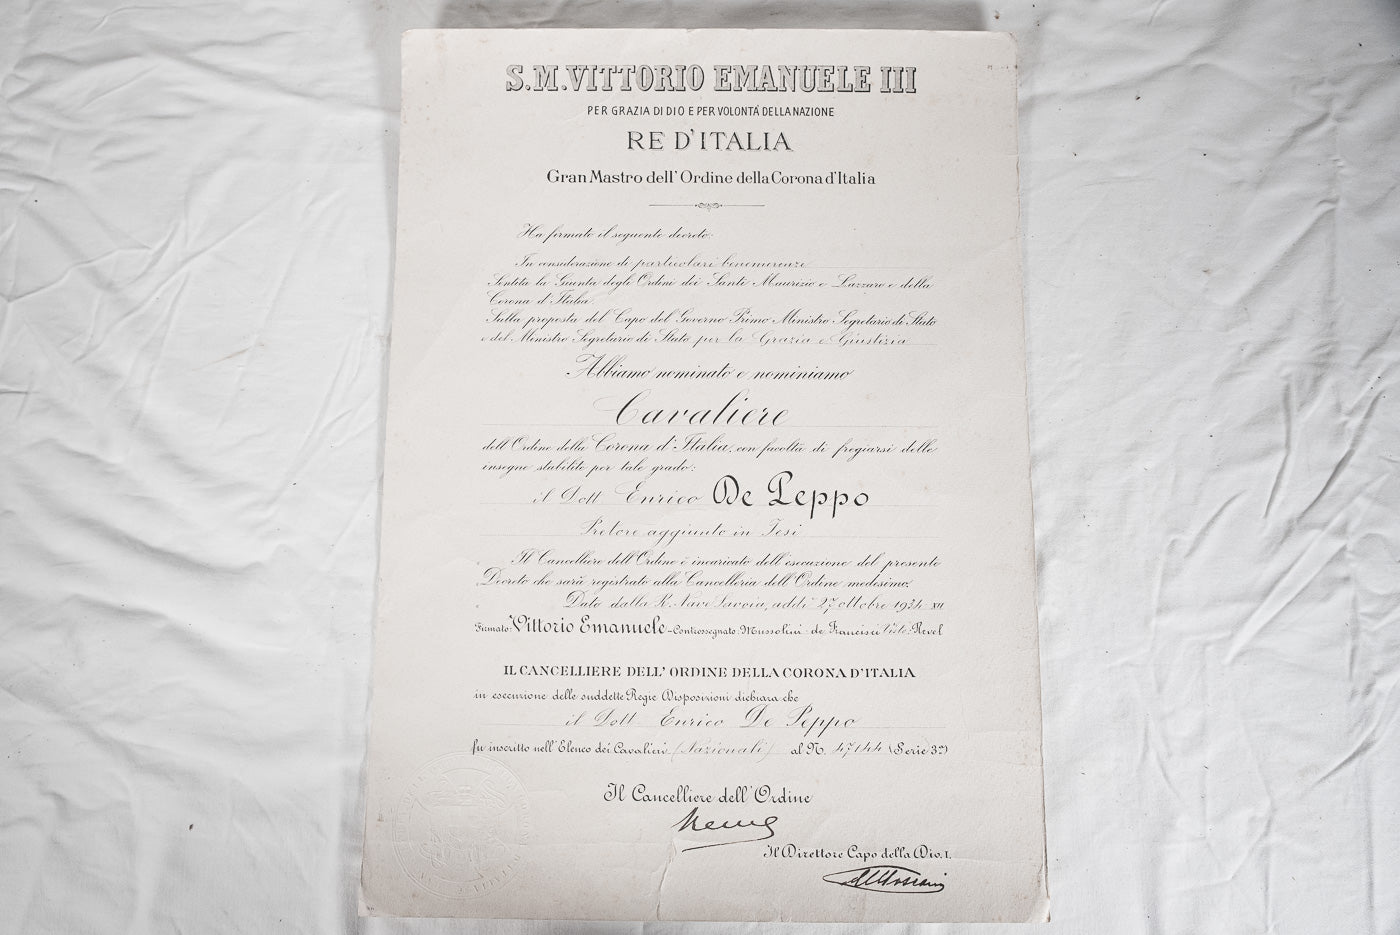 S.M.VITTORIO EMANUELE III
PER GRAZIA DI DIO E PER VOLONTÀ DELLA NAZIONE
RE D'ITALIA
Gran Mastro dell'Ordine della Corona d'Italia
Ha firmato il seguente decreto:
In considerazione di particolari benemerenze
Sentita la Giunta degli Ordini dei Santi Maurizio e Lazzaro e della
Corona d'Italia.
Sulla proposta del Capo del Governo Primo Ministro Segretario di Stato
e del Ministro Segretario di Stato per la Grazia e Giustizia
Abbiamo nominato e nominiamo
Cavaliere
dell'Ordine della Corona d'Italia, con facoltà di fregiarsi delle
insegne stabilite per tale grado:
il Dott Enrico De Peppo
Pretore aggiunto in Jesi
Il Cancelliere dell'Ordine è incaricato dell'esecuzione del presente
Decreto che sarà registrato alla Cancelleria dell'Ordine medesimo.
Dato dalla R. Nave Savoia, addì 27 ottobre 1934 XII
Firmato: Vittorio Emanuele - Controssegnato: Mussolini - de Francisci Visto: Revel
IL CANCELLIERE DELL'ORDINE DELLA CORONA D'ITALIA
in esecuzione delle suddette Regie Disposizioni dichiara che
il Dott Enrico De Peppo
fu inscritto nell'Elenco dei Cavalieri (Nazionali) al N. 47144 (Serie 3a)
Il Cancelliere dell'Ordine
Il Direttore Capo della Div. I.